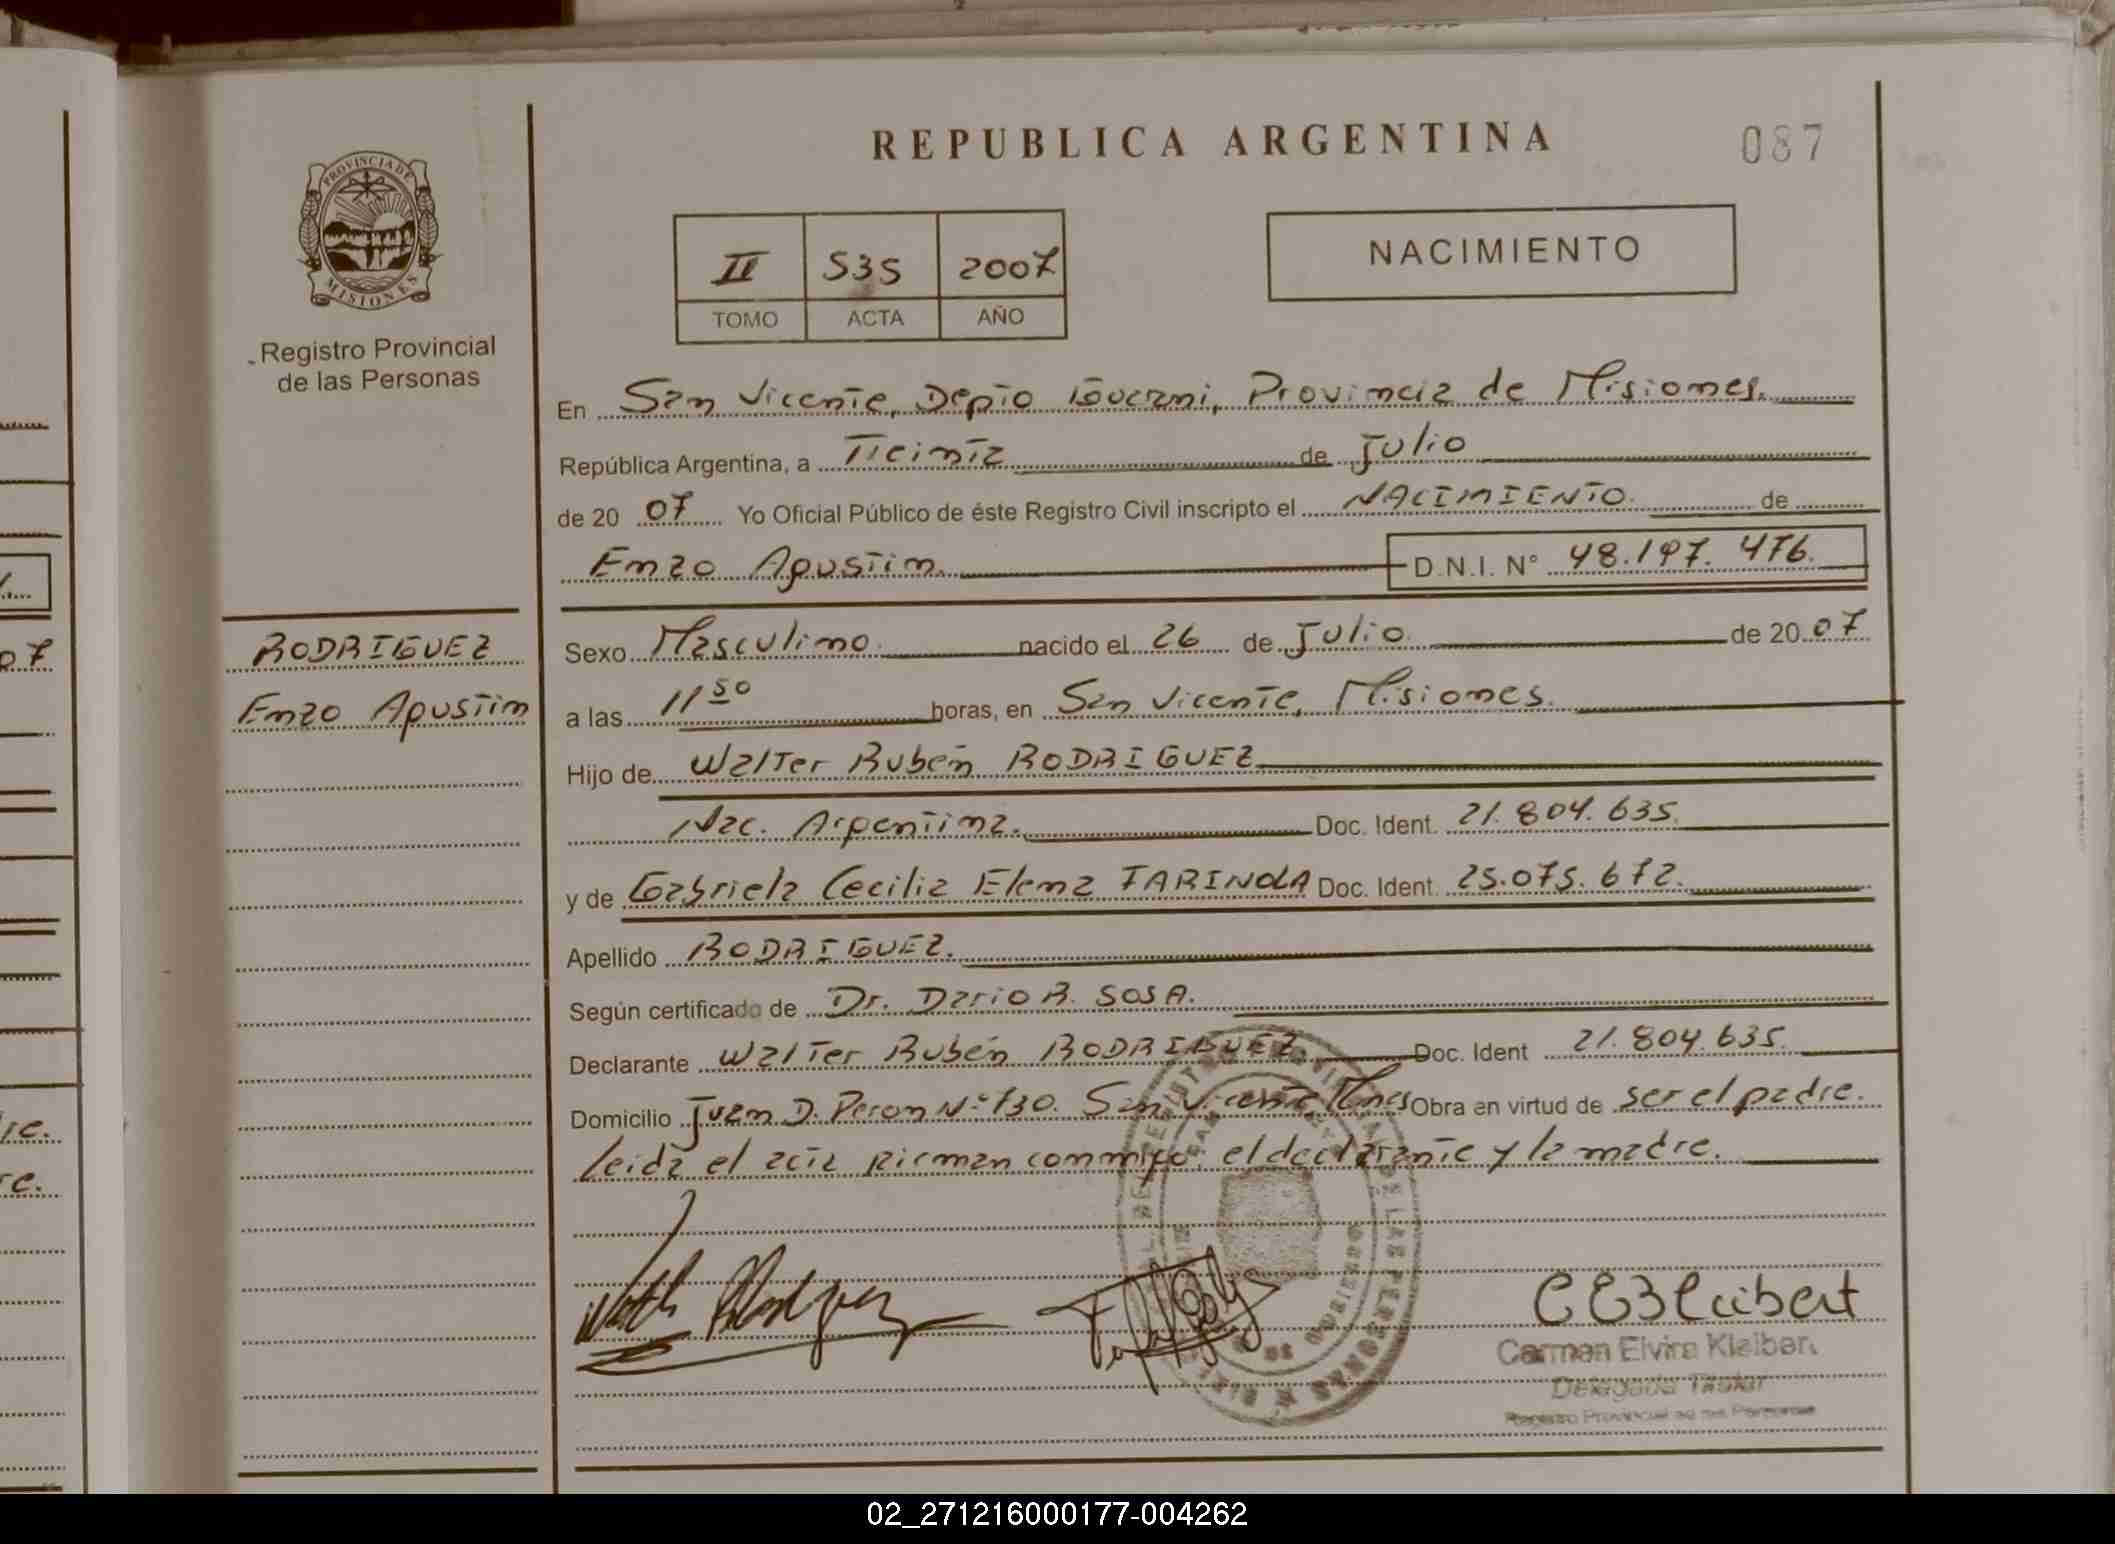 REPUBLICA ARGENTINA
087
PROVINCIA DE
MISIONES
Registro Provincial
de las Personas
II 535 2007
TOMO ACTA AÑO
NACIMIENTO
En San Vicente, Depto Guaraní, Provincia de Misiones.
República Argentina, a Treinta de Julio
de 2007 Yo Oficial Público de éste Registro Civil inscripto el NACIMIENTO. de
Enzo Agustin. D.N.I. N° 48.197.476.
RODRIGUEZ
Enzo Agustin
Sexo Masculino. nacido el 26 de Julio. de 2007
a las 11 50 horas, en San Vicente, Misiones.
Hijo de Walter Rubén RODRIGUEZ
Nac. Argentina. Doc. Ident. 21.804.635.
y de Gabriela Cecilia Elena FARINOLA Doc. Ident. 25.075.672.
Apellido RODRIGUEZ.
Según certificado de Dr. Dario R. SOSA.
Declarante Walter Rubén RODRIGUEZ. Doc. Ident 21.804.635.
Domicilio Juan D. Peron N° 730. San Vicente, Mnes Obra en virtud de ser el padre.
Leida el acta firman conmigo: el declarante y la madre.
Carmen Elvira Kleibert
Delegada Titular
Registro Provincial de las Personas
02_271216000177-004262